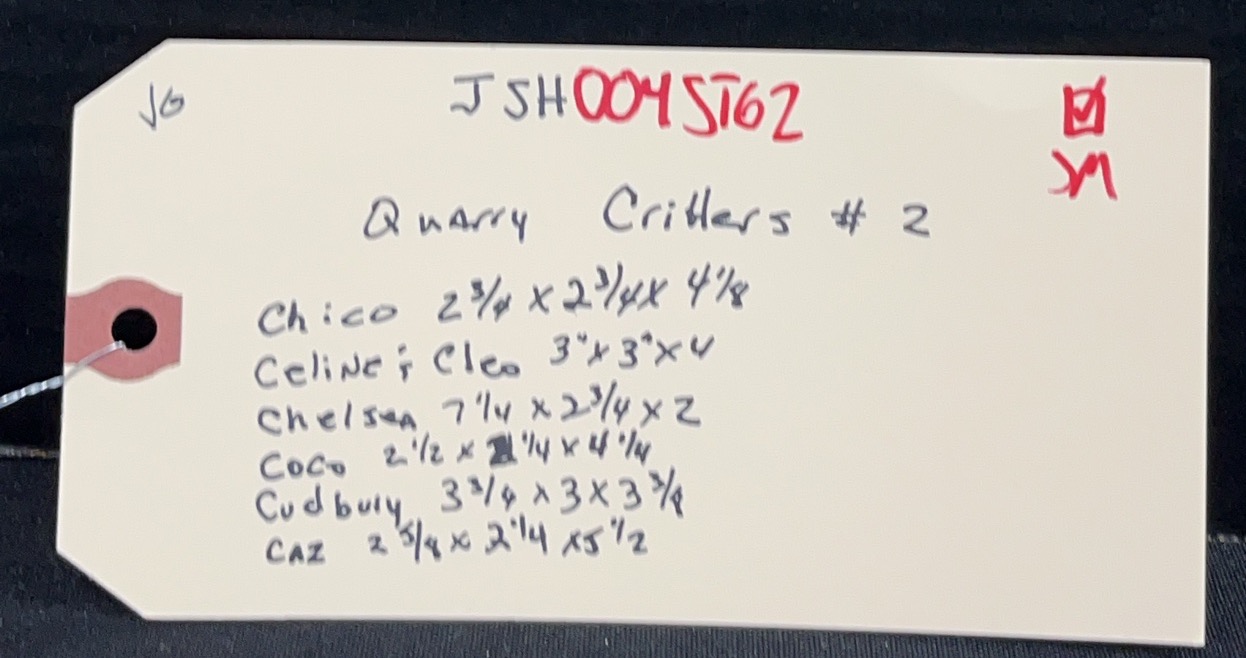 JG
JSH0045T62
JM
Quarry Critters # 2
Chico 2 3/4 x 2 3/4 x 4 1/8
Celine & Cleo 3" x 3" x 4
Chelsea 7 1/4 x 2 3/4 x 2
Coco 2 1/2 x 1/4 x 4 1/4
Cudbury 3 3/4 x 3 x 3 3/4
CAZ 2 5/8 x 2 1/4 x 5 1/2